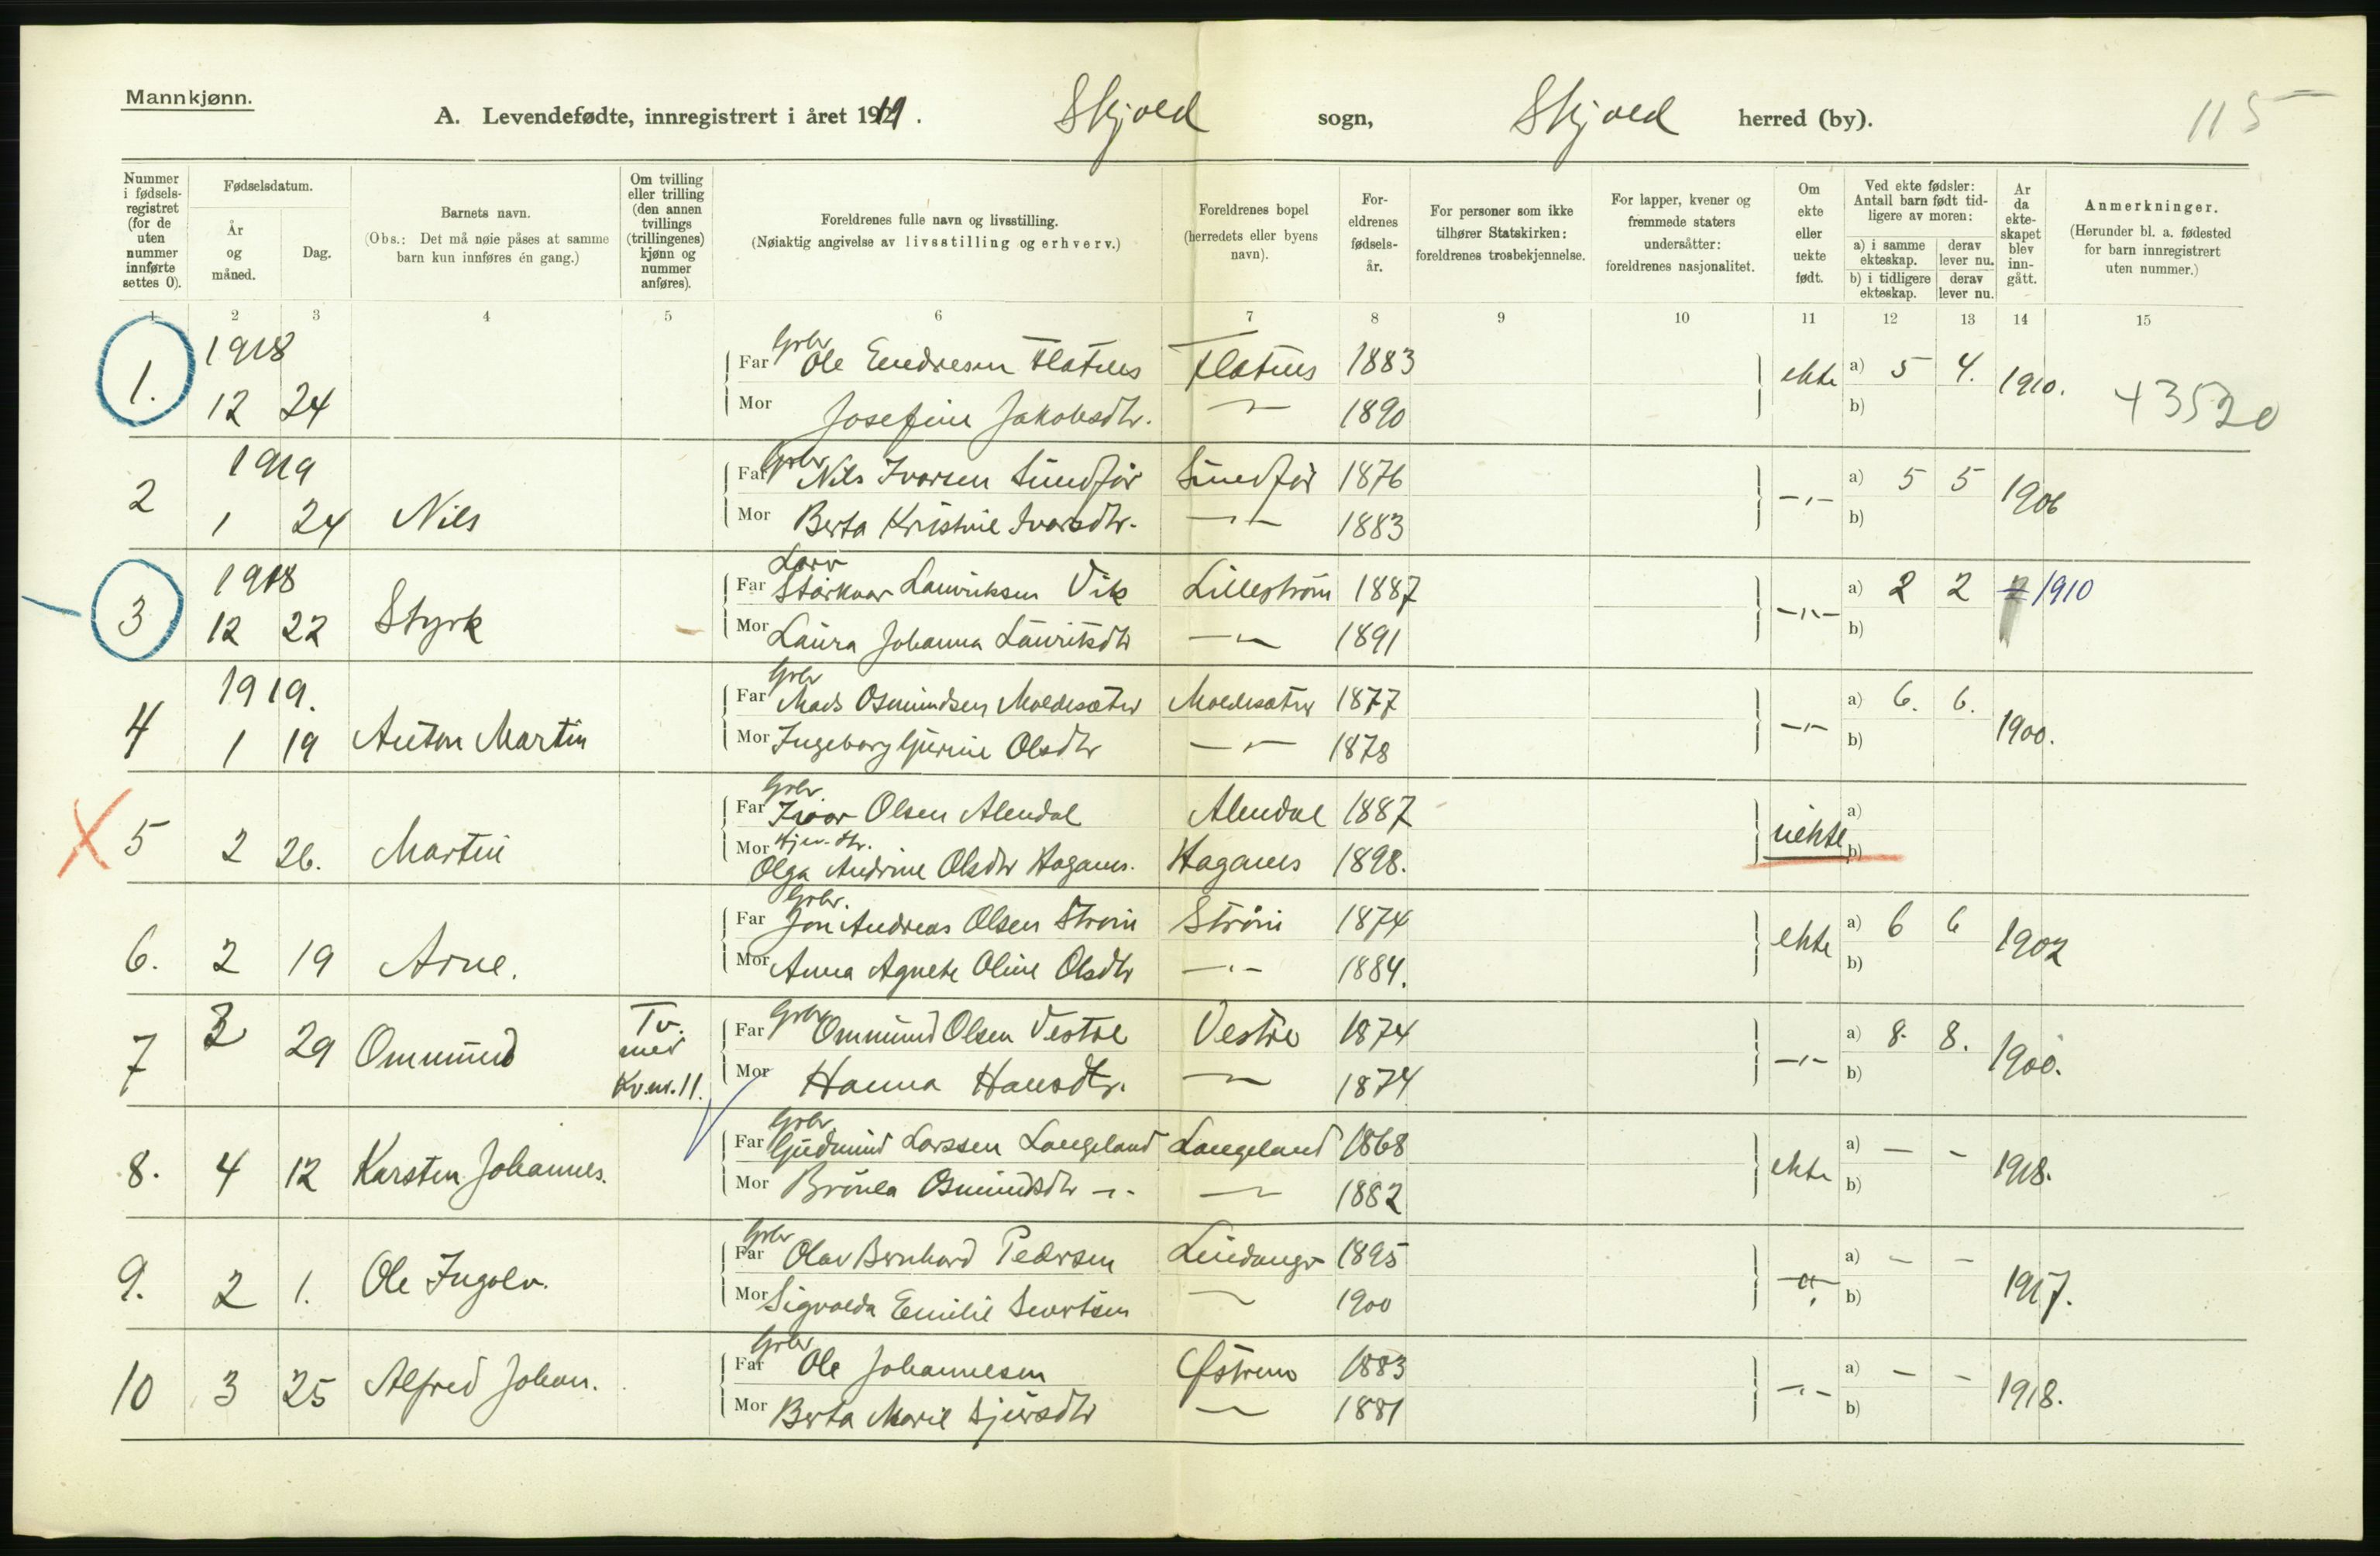 Mannkjønn.
A. Levendefødte, innregistrert i året 1919. Skjold sogn, Skjold herred (by).
115
Nummer i fødsels-registret (for de uten nummer innførte settes 0).
Fødselsdatum.
År og måned.
Dag.
Barnets navn.
(Obs.: Det må nøie påses at samme barn kun innføres én gang.)
Om tvilling eller trilling (den annen tvillings (trillingenes) kjønn og nummer anføres).
Foreldrenes fulle navn og livsstilling.
(Nøiaktig angivelse av livsstilling og erhverv.)
Foreldrenes bopel (herredets eller byens navn).
For-eldrenes fødsels-år.
For personer som ikke tilhører Statskirken: foreldrenes trosbekjennelse.
For lapper, kvener og fremmede staters undersåtter: foreldrenes nasjonalitet.
Om ekte eller uekte født.
Ved ekte fødsler: Antall barn født tid-ligere av moren:
a) i samme ekteskap.
derav lever nu.
b) i tidligere ekteskap.
derav lever nu.
Ar da ekte-skapet blev inn-gått.
Anmerkninger.
(Herunder bl. a. fødested for barn innregistrert uten nummer.)
1 2 3 4 5 6 7 8 9 10 11 12 13 14 15
1. 1918 12 24 Far Grbr Ole Endresen Flatnes Flatnes 1883 ekte a) 5 4. 1910. +3520
Mor Josefine Jakobsdtr. -"- 1890 b)
2 1919 1 24 Nils Far Grbr Nils Ivarsen Sundfør Sundfør 1876 -"- a) 5 5 1906
Mor Berta Kristine Ivarsdtr. -"- 1883 b)
3 1918 12 22 Styrk Far Størkver Lauriksen Vik Lillestrøm 1887 -"- a) 2 2 1910
Mor Laura Johanna Lauritsdtr -"- 1891 b)
4 1919. 1 19 Anton Martin Far Grbr Mads Osmundsen Moldesæter Moldesæter 1877 -"- a) 6. 6. 1900.
Mor Ingeborg Gurine Olsdtr -"- 1878 b)
5 2 26. Martin Far Grbr. Ivar Olsen Alendal Alendal 1887 uekte a)
Mor Hjem. dtr. Olga Andrine Olsdtr Haganes. Haganes 1898. b)
6. 2 19 Arne. Far Grbr. Jon Andreas Olsen Strøm Strøm 1874 ekte a) 6 6 1902
Mor Anna Agnete Oline Olsdtr -"- 1884. b)
7 3 29 Ommund Tv. med Kv. nr. 11. Far Grbr Ommund Olsen Vestre Vestre 1874 -"- a) 8. 8. 1900.
Mor Hanna Hansdtr. -"- 1874 b)
8. 4 12 Karsten Johannes. Far Grbr Gudmund Larssen Langeland Langeland 1868 ekte a) - - 1918.
Mor Osmundsdtr -"- -"- 1882 b)
9. 2 1. Ole Ingolv. Far Grbr Olav Bernhard Pedersen 1895 -"- a) - - 1917.
Mor Sigvalda Emilie -"- 1900 b)
10 3 25 Alfred Johan. Far Grbr Ole Johannesen Østrem 1883 -"- a) - - 1918.
Mor Berta Marie -"- 1881 b)